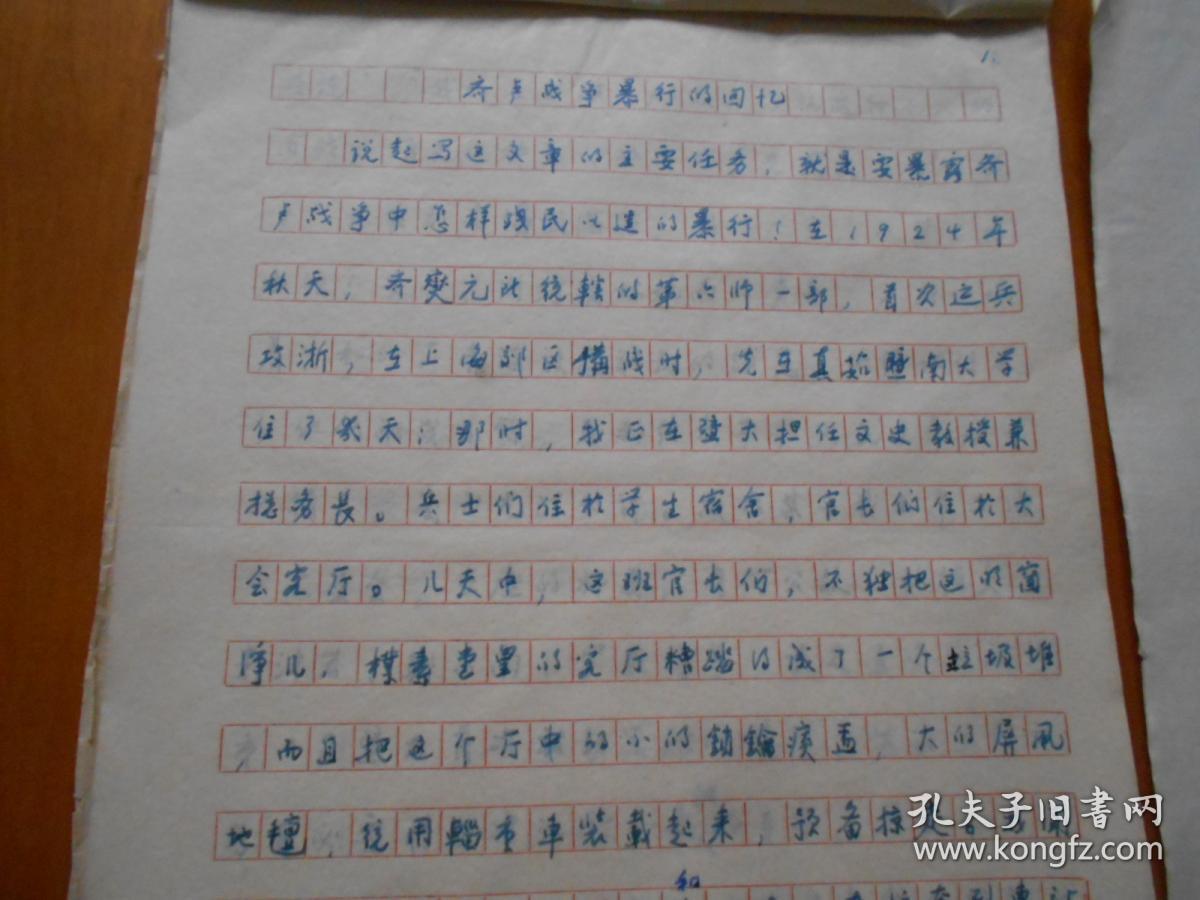 1.
齐卢战争暴行的回忆
说起写这文章的主要任务，就是要暴露齐
卢战争中怎样残民以逞的暴行！在1924年
秋天，齐燮元所统辖的第六师一部，首次进兵
攻浙，在上海郊区搆战时，先在真茹暨南大学
住了几天；那时，我正在暨大担任文史教授兼
总务长。兵士们住於学生宿舍，官长们住於大
会客厅。几天中，这班官长们，不独把这明窗
净几，朴素整里的客厅糟踏的成了一个垃圾堆
，而且把这个厅中的小的锁鑰痰盂，大的屏风
地氊，统用輜重車装載起来，预备掠
和
孔夫子旧书网
www.kongfz.com